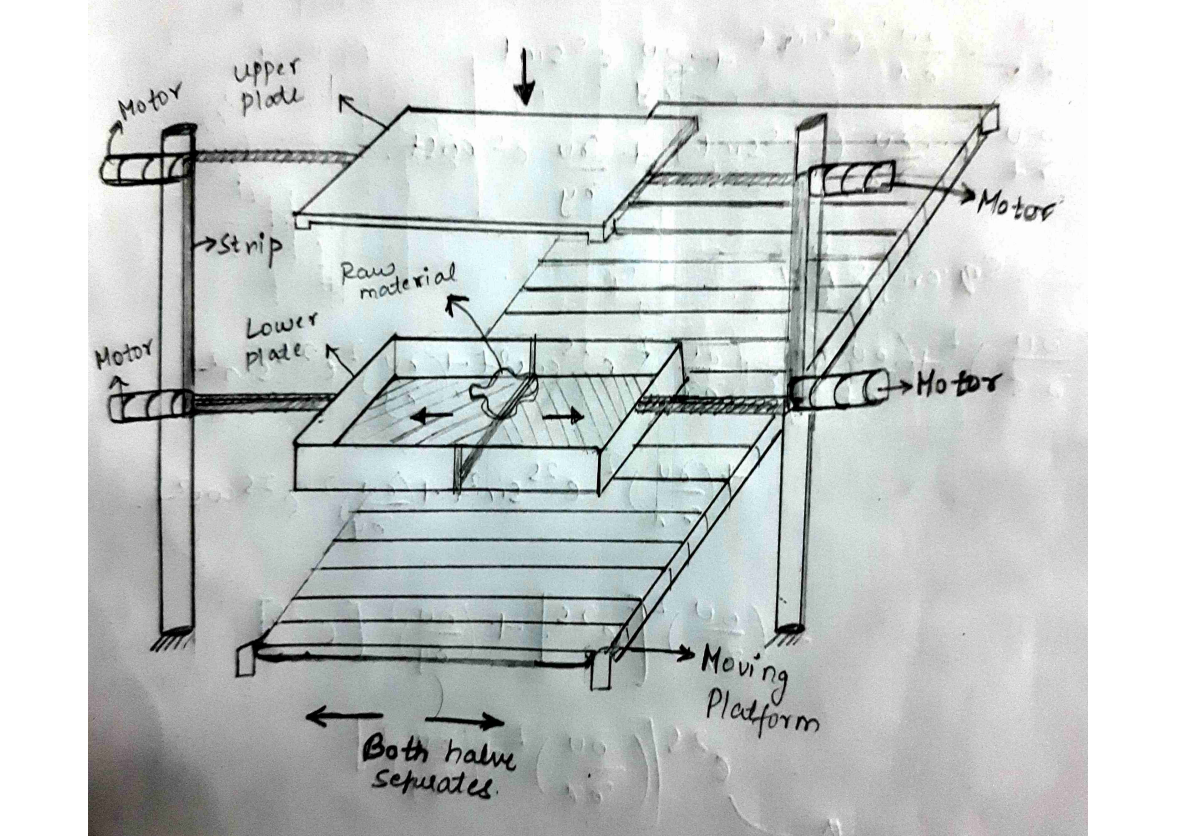 Motor
upper
plate
Motor
Strip
Raw
material
Lower
plate
Motor
Motor
Moving
Platform
Both halve
seperates.